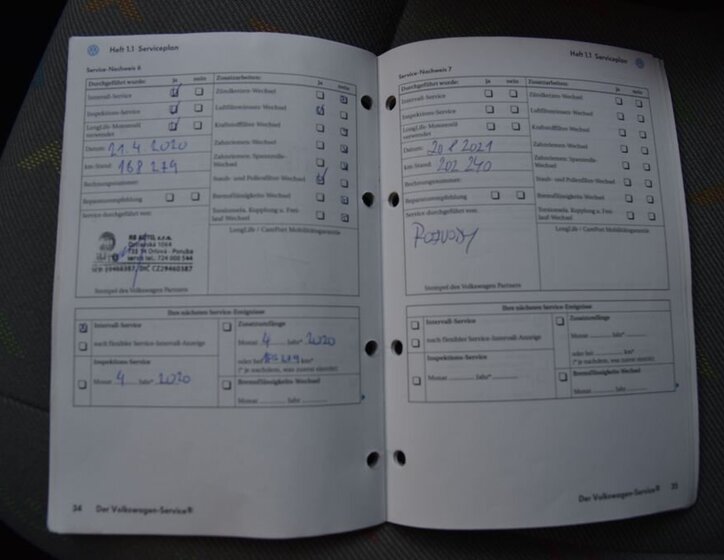 Heft 1.1 Serviceplan
Service-Nachweis 6
Durchgeführt wurde: ja nein
Intervall-Service
Inspektions-Service
LongLife-Motorenöl
verwendet
Datum: 21.4 2020
km-Stand: 168 279
Rechnungsnummer:
Reparaturempfehlung
Service durchgeführt von:
RB AUTO, s.r.o.
735 14 Orlová - Poruba
servis tel.: 724 008 544
DIČ CZ29460387
Stempel des Volkswagen Partners
Zusatzarbeiten: Ja nein
Zündkerzen-Wechsel
Luftfiltereinsatz-Wechsel
Kraftstofffilter-Wechsel
Zahnriemen-Wechsel
Zahnriemen, Spannrolle-
Wechsel
Staub- und Pollenfilter-Wechsel
Bremsflüssigkeits-Wechsel
LongLife / CarePort Mobilitätsgarantie
Ihre nächsten Service-Ereignisse
Intervall-Service
nach flexibler Service-Intervall-Anzeige
Inspektions-Service
Monat 4 Jahr* 2020
Zusatzumfänge
Monat 4 Jahr* 2020
oder bei km*
(* je nachdem, was zuerst eintritt)
Bremsflüssigkeits-Wechsel
Monat Jahr
34 Der Volkswagen-Service®
Heft 1.1 Serviceplan
Service-Nachweis 7
Durchgeführt wurde: ja nein
Intervall-Service
Inspektions-Service
LongLife-Motorenöl
verwendet
Datum: 20.8 2021
km-Stand: 202 240
Rechnungsnummer:
Reparaturempfehlung
Service durchgeführt von:
ROZVODY
Stempel des Volkswagen Partners
Zusatzarbeiten: ja nein
Zündkerzen-Wechsel
Luftfiltereinsatz-Wechsel
Kraftstofffilter-Wechsel
Zahnriemen-Wechsel
Zahnriemen, Spannrolle-
Wechsel
Staub- und Pollenfilter-Wechsel
Bremsflüssigkeits-Wechsel
LongLife / CarePort Mobilitätsgarantie
Ihre nächsten Service-Ereignisse
Intervall-Service
nach flexibler Service-Intervall-Anzeige
Inspektions-Service
Monat Jahr*
Zusatzumfänge
Monat Jahr*
oder bei km*
(* je nachdem, was zuerst eintritt)
Bremsflüssigkeits-Wechsel
Monat Jahr
Der Volkswagen-Service® 35